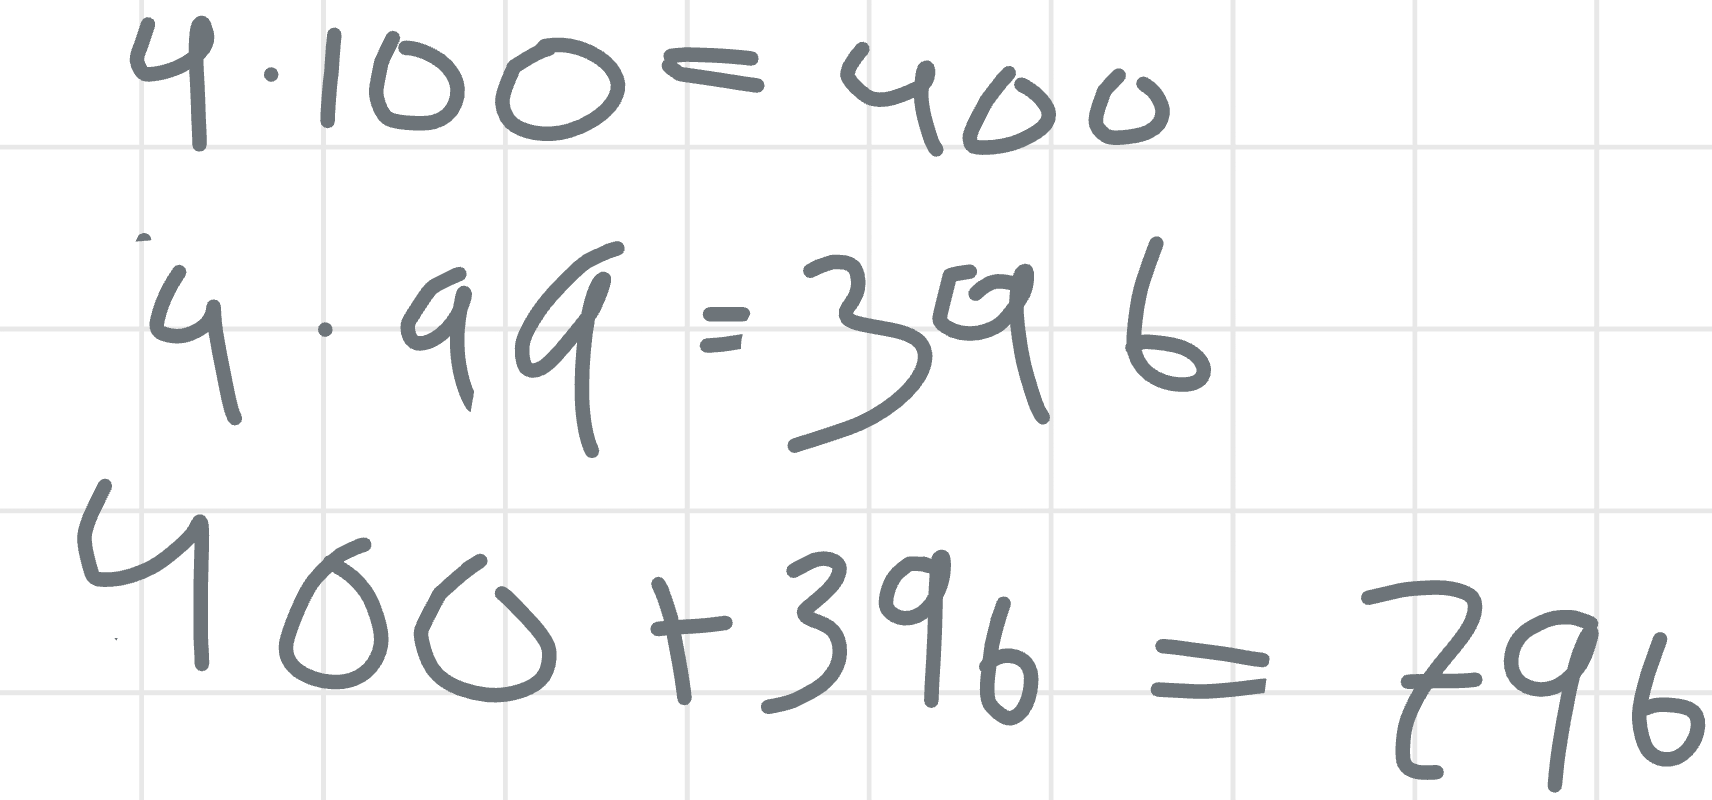 4·100=400
4·99=396
400+396=796